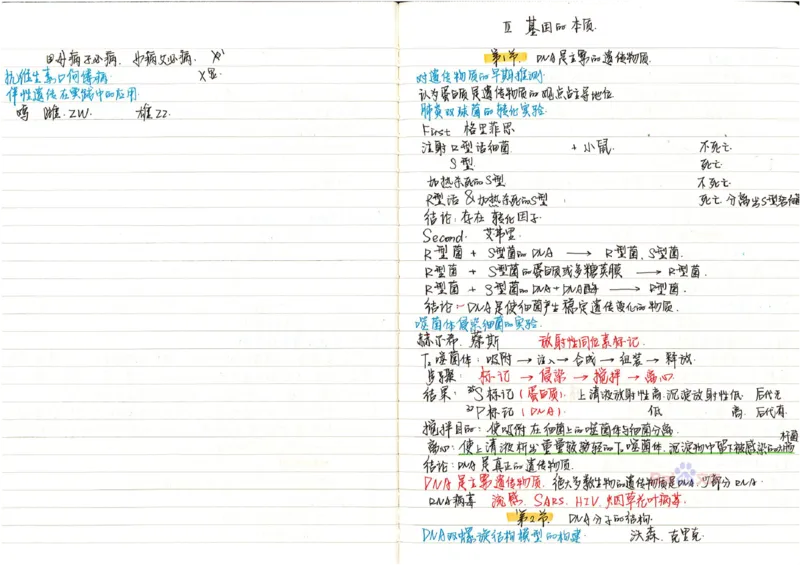 母病子必病，女病父必病.
抗维生素D佝偻病 X显.
伴性遗传在实践中的应用
鸡 雌. ZW. 雄 ZZ.
Ⅱ 基因的本质.
第1节. DNA是主要的遗传物质.
对遗传物质的早期推测.
认为蛋白质是遗传物质的观点占主导地位.
肺炎双球菌的转化实验.
First 格里菲思
注射R型活细菌 + 小鼠. 不死亡.
S型 死亡.
加热杀死的S型 不死亡.
R型活 & 加热杀死的S型 死亡. 分离出S型活细菌
结论: 存在 转化因子.
Second. 艾弗里.
R型菌 + S型菌的DNA → R型菌, S型菌.
R型菌 + S型菌的蛋白质或多糖荚膜 → R型菌.
R型菌 + S型菌的DNA+DNA酶 → R型菌.
结论: DNA是使细菌产生稳定遗传变化的物质.
噬菌体侵染细菌的实验.
赫尔希. 蔡斯 放射性同位素标记.
T₂噬菌体: 吸附 → 注入 → 合成 → 组装 → 释放.
步骤: 标记 → 侵染 → 搅拌 → 离心.
结果: ³⁵S标记(蛋白质). 上清液放射性高. 沉淀放射性低. 后代无
³²P标记(DNA). 低 高. 后代有.
搅拌目的: 使吸附在细菌上的噬菌体与细菌分离.
离心: 使上清液析出重量较轻的T₂噬菌体, 沉淀物中留下被感染的大肠杆菌
结论: DNA是真正的遗传物质.
DNA是主要遗传物质. 绝大多数生物的遗传物质是DNA, 少部分RNA.
RNA病毒 流感. SARS. HIV. 烟草花叶病毒.
第2节. DNA分子的结构.
DNA双螺旋结构模型的构建. 沃森. 克里克.